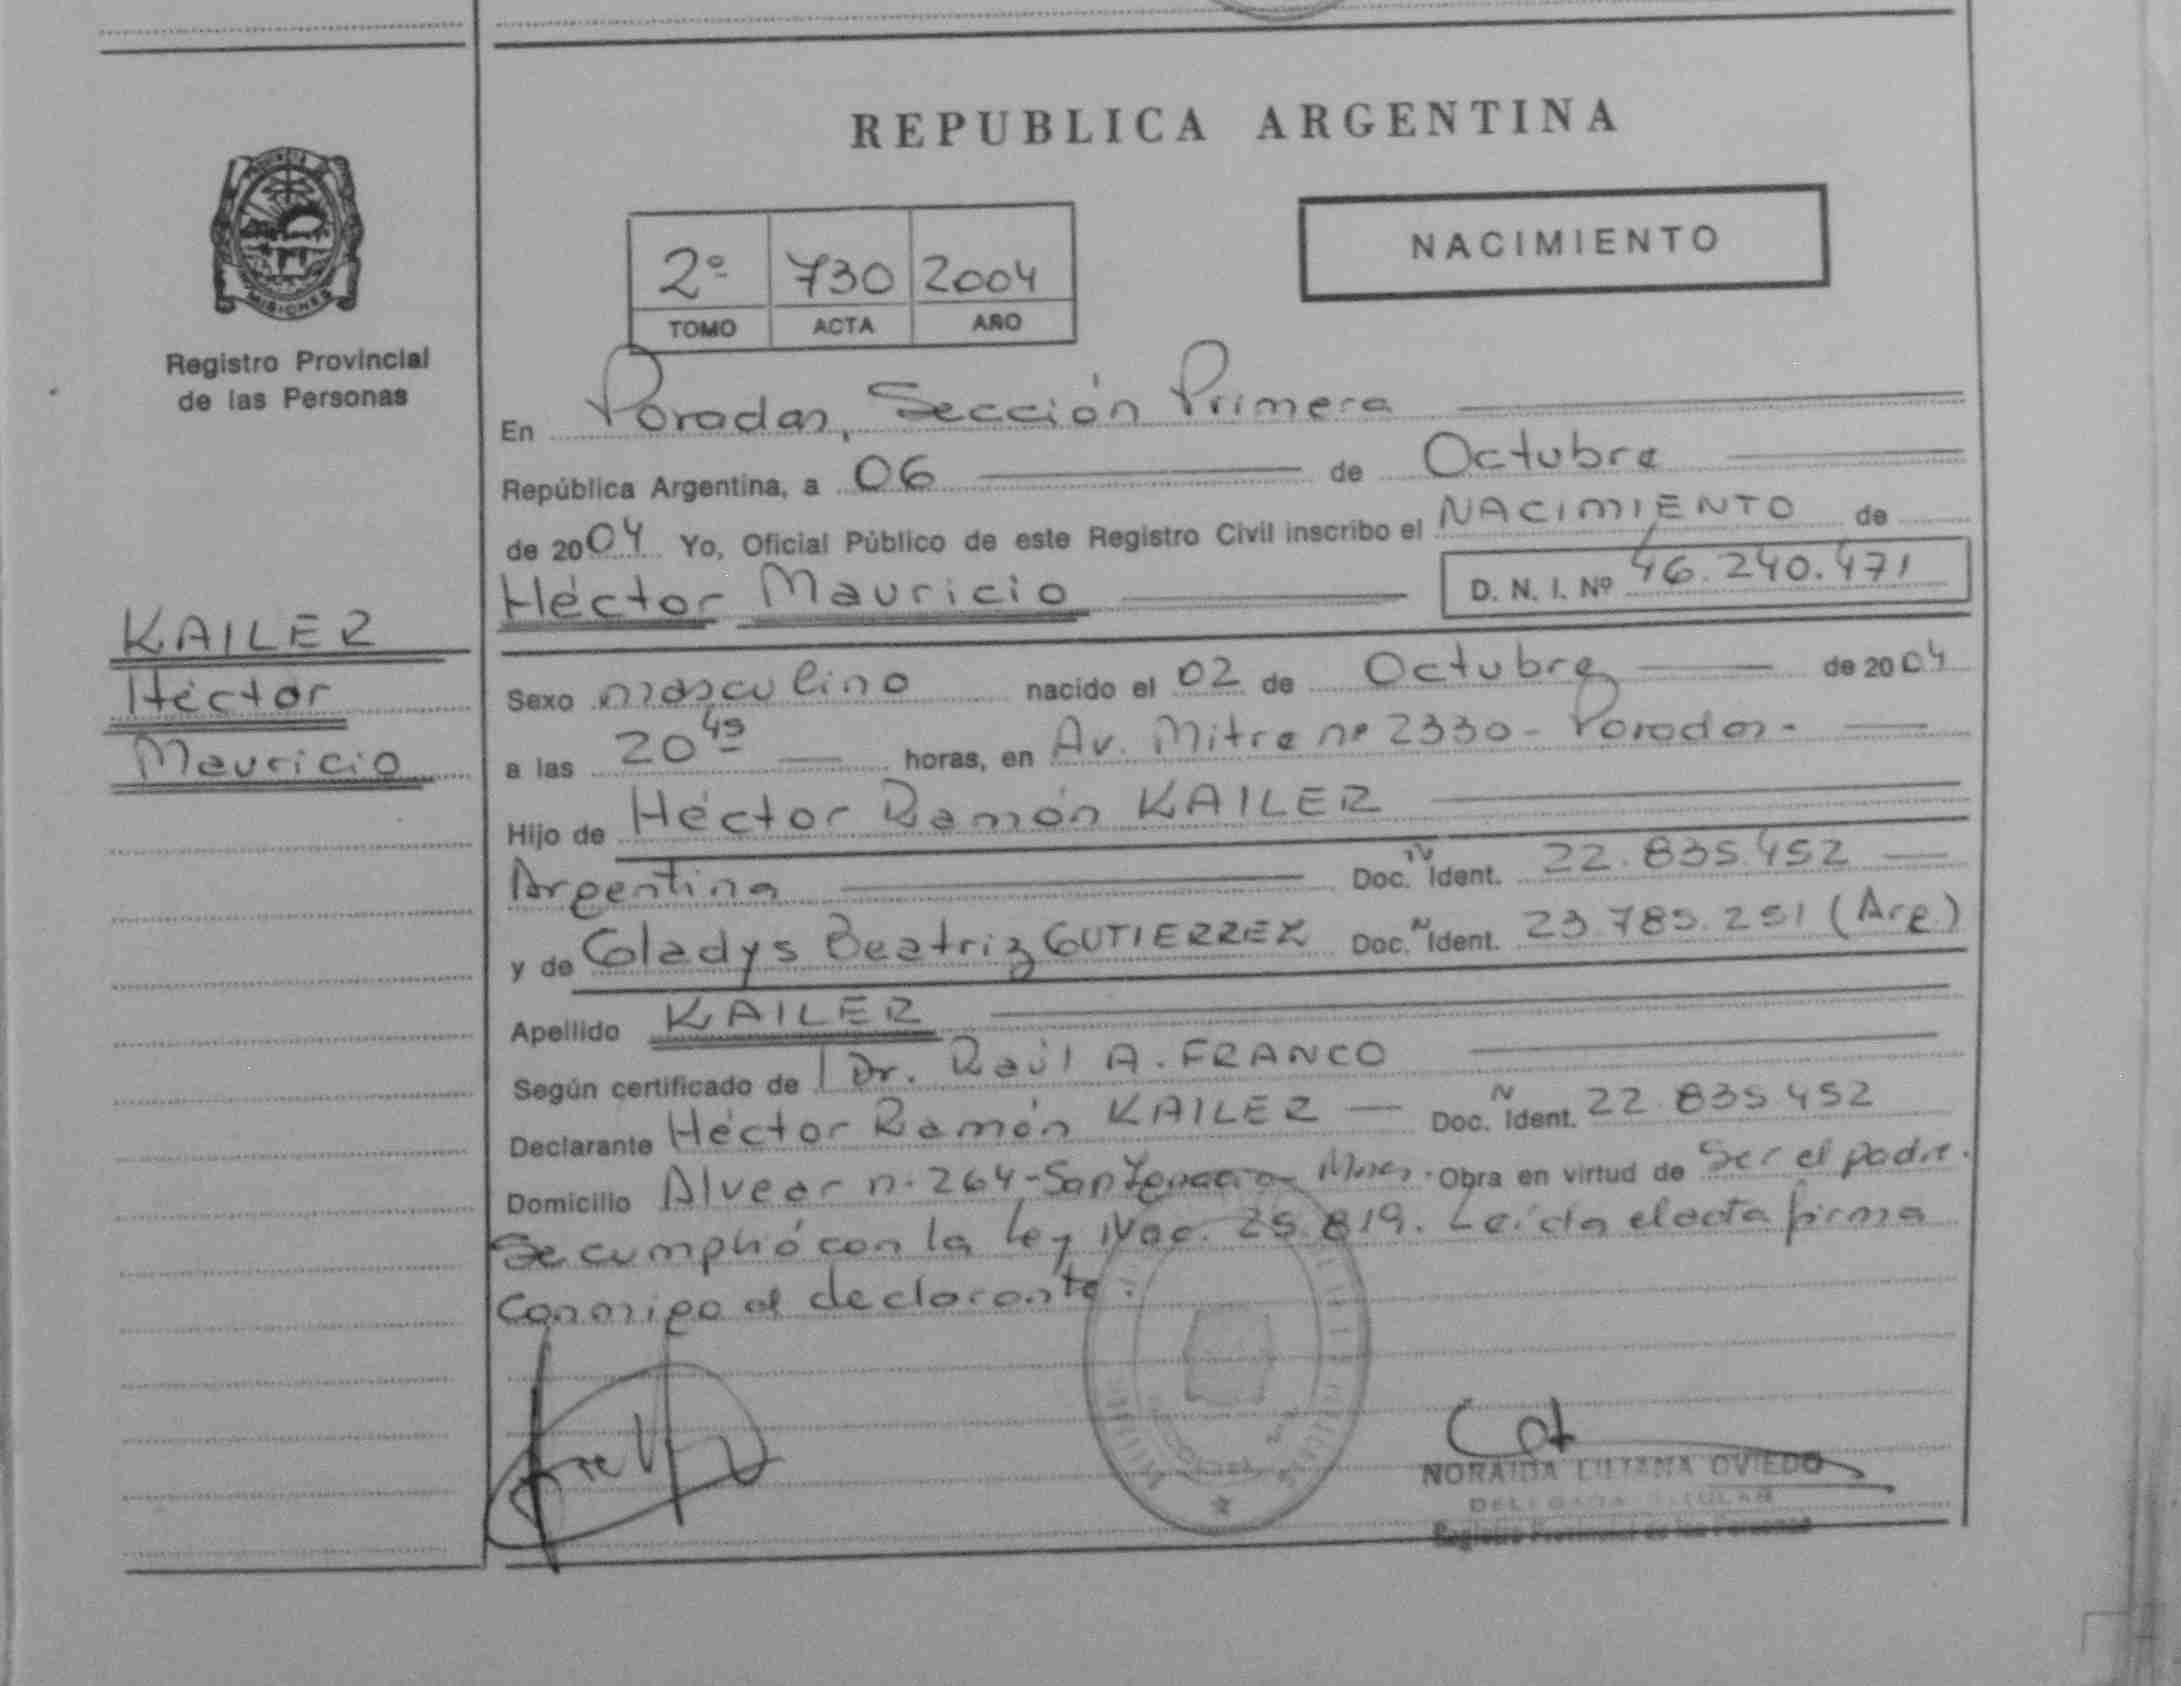 REPUBLICA ARGENTINA
NACIMIENTO
2º 730 2004
TOMO ACTA AÑO
PROVINCIA
MISIONES
Registro Provincial
de las Personas
KAILER
Héctor
Mauricio
En Posadas, Sección Primera
República Argentina, a 06 de Octubre
de 2004 Yo, Oficial Público de este Registro Civil inscribo el NACIMIENTO de
Héctor Mauricio D. N. I. Nº 46.240.471
Sexo masculino nacido el 02 de Octubre de 2004
a las 20 45 horas, en Av. Mitre nº 2330 - Posadas -
Hijo de Héctor Ramón KAILER
Argentina Doc. N Ident. 22.835.452
y de Gladys Beatriz GUTIERREZ Doc. N Ident. 23.785.251 (Arg)
Apellido KAILER
Según certificado de Dr. Raúl A. FRANCO
Declarante Héctor Ramón KAILER Doc. N Ident. 22.835.452
Domicilio Alvear n. 264 - San Ignacio - Mnes. Obra en virtud de ser el padre.
Se cumplió con la Ley Nac. 25.819. Leída el acta firma
conmigo el declarante.
NORAIDA LILIANA OVIEDO
DELEGADA TITULAR
Registro Provincial de las Personas